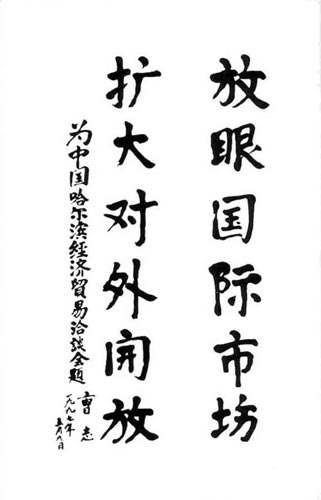 放眼国际市坊
扩大对外开放
为中国哈尔滨經济贸易洽談会题
曹志
一九九七年
五月八日